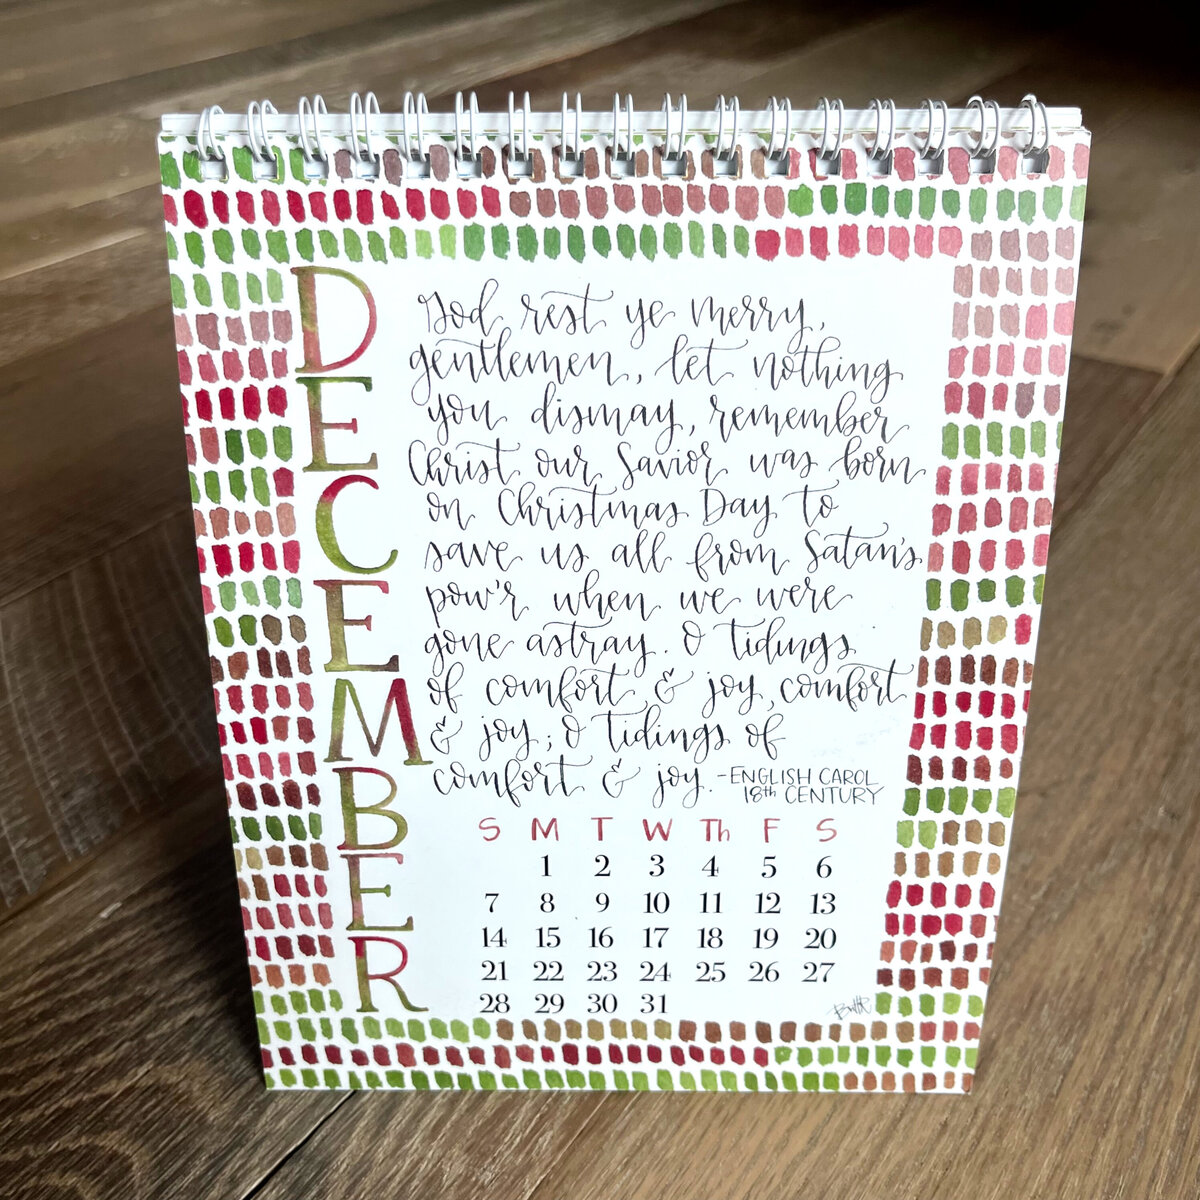 DECEMBER
God rest ye merry,
gentlemen, let nothing
you dismay, remember
Christ our Savior was born
on Christmas Day to
save us all from Satan's
pow'r when we were
gone astray. O tidings
of comfort & joy, comfort
& joy; O tidings of
comfort & joy. -ENGLISH CAROL
18th CENTURY
S M T W Th F S
1 2 3 4 5 6
7 8 9 10 11 12 13
14 15 16 17 18 19 20
21 22 23 24 25 26 27
28 29 30 31